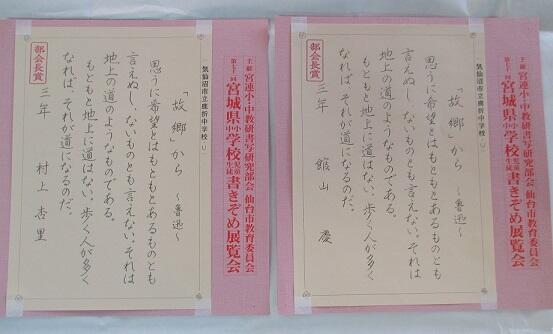 主催 宮連小・中教研書写研究部会 仙台市教育委員会
宮城県小中学校児童生徒書きぞめ展覧会
気仙沼市立鹿折中学校
部会長賞
「故郷」から ～魯迅～
思うに希望とはもともとあるものとも
言えぬし、ないものとも言えない。それは
地上の道のようなものである。
もともと地上に道はない。歩く人が多く
なれば、それが道になるのだ。
三年 舘山 慶
主催 宮連小・中教研書写研究部会 仙台市教育委員会
宮城県小中学校児童生徒書きぞめ展覧会
気仙沼市立鹿折中学校
部会長賞
「故郷」から ～魯迅～
思うに希望とはもともとあるものとも
言えぬし、ないものとも言えない。それは
地上の道のようなものである。
もともと地上に道はない。歩く人が多く
なれば、それが道になるのだ。
三年 村上 杏里